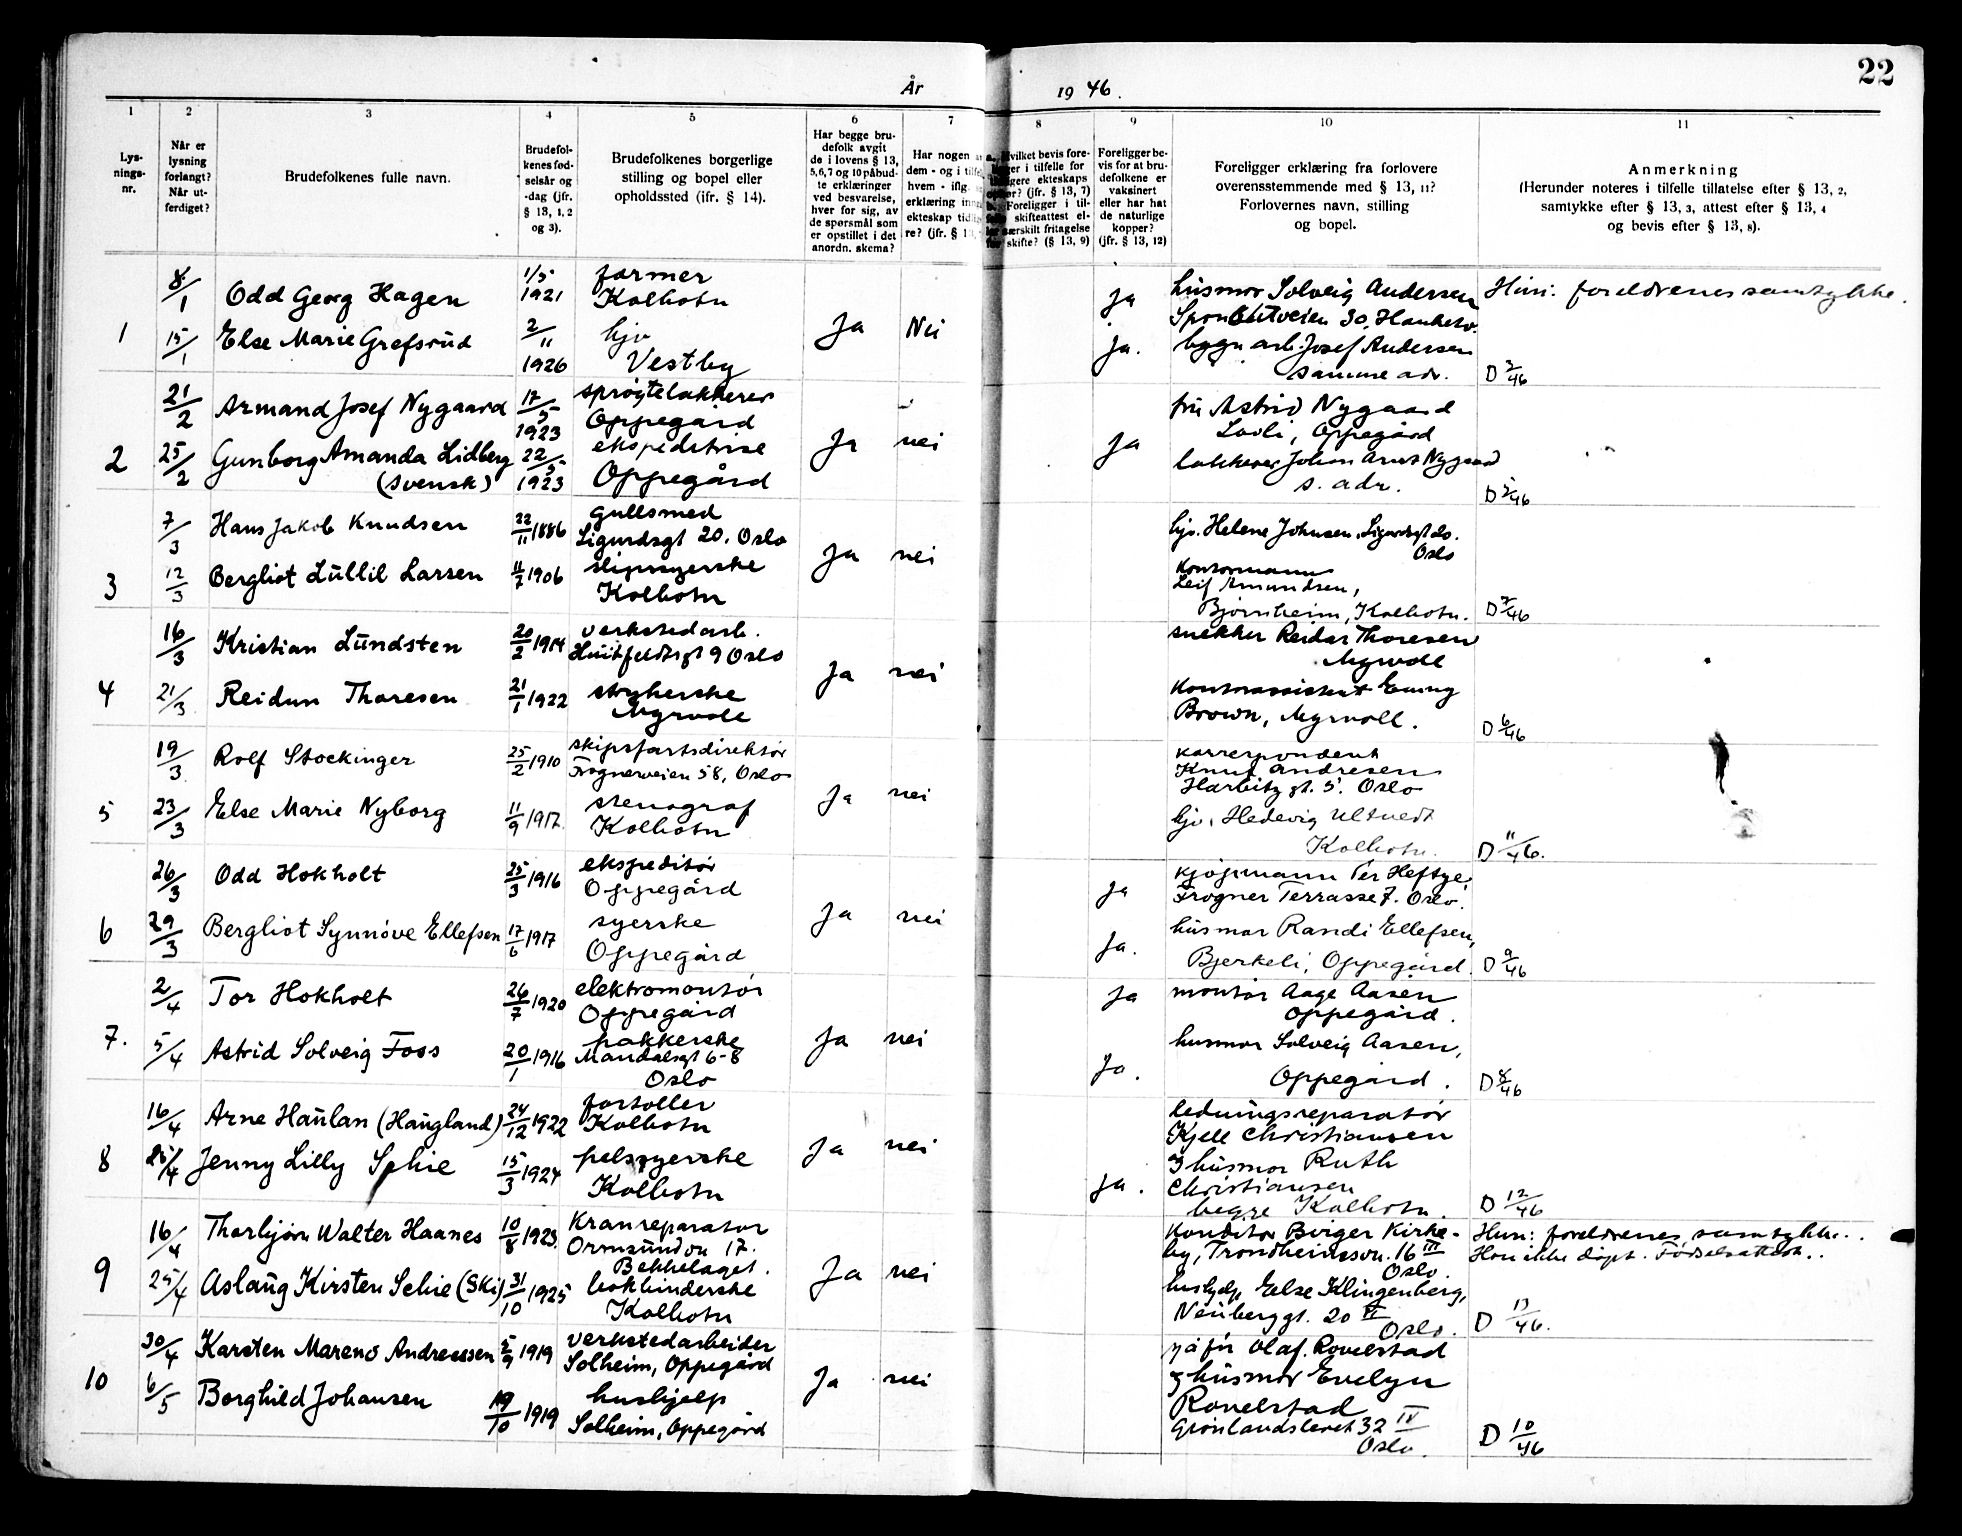 22
År 1946.
1 2 3 4 5 6 7 8 9 10 11
Lys-
nings-
nr.
Når er
lysning
forlangt?
Når ut-
ferdiget?
Brudefolkenes fulle navn.
Brudefol-
kenes fød-
selsår og
-dag (jfr.
§ 13, 1, 2
og 3).
Brudefolkenes borgerlige
stilling og bopel eller
opholdssted (ifr. § 14).
Har begge bru-
defolk avgit
de i lovens § 13,
5,6,7 og 10 påbud-
te erklæringer
ved besvarelse,
hver for sig, av
de spørsmål som
er opstillet i det
anordn. skema?
Har nogen
dem - og i
hvem - iflg.
erklæring
ekteskap
re? (jfr. §
vilket bevis fore-
i tilfelle for
ekteskaps
(jfr. § 13, 7)
Foreligger i til-
skifteattest el-
særskilt fritagelse
skifte? (§ 13, 9)
Foreligger be-
vis for at bru-
defolkene er
vaksinert
eller har hat
de naturlige
kopper?
(jfr. § 13, 12)
Foreligger erklæring fra forlovere
overensstemmende med § 13, 11?
Forlovernes navn, stilling
og bopel.
Anmerkning
(Herunder noteres i tilfelle tillatelse efter § 13, 2,
samtykke efter § 13, 3, attest efter § 13, 4
og bevis efter § 13, 8).
1 8/1 Odd Georg Hagen 1/5 1921 farmer
Kolbotn
15/1 Else Marie Grefsrud 2/11 1926 hjv
Vestby
Ja Nei
ja
ja.
husmor Solveig Andersen
30, Hauketo.
bygn.arb. Josef Andersen
samme adr.
Hun: foreldrenes samtykke.
D 3/46
2 21/2 Armand Josef Nygaard 17/5 1923 sprøytelakkerer
Oppegård
25/2 Gunborg Amanda Lidberg
(svensk) 22/5 1923 ekspeditrise
Oppegård
Ja nei ja
fru Astrid Nygaard
Lovli, Oppegård
lakkerer Johan Arnt Nygaard
s. adr.
D 5/46
3 7/3 Hans Jakob Knudsen 22/11 1886 gullsmed
Sigurdsgt 20. Oslo
12/3 Bergliot Lullil Larsen 11/7 1906 slipssyerske
Kolbotn
Ja nei
hjv. Helene Johnsen, Sigurdsgt 20.
Oslo
Kontormann
Leif Amundsen,
Bjørnheim, Kolbotn.
D 7/46
4 16/3 Kristian Lundsten 20/2 1914 verkstedarb.
Huitfeldtsgt 9 Oslo
21/3 Reidun Thoresen 21/1 1922 strykerske
Myrvoll
Ja nei
snekker Reidar Thoresen
Myrvoll
Kontorassistent
Brown, Myrvoll.
D 6/46
5 19/3 Rolf Stockinger 25/2 1910 skipsfartsdirektør
Frognerveien 58, Oslo
23/3 Else Marie Nyborg 11/9 1917. stenograf
Kolbotn
Ja nei
korrespondent
Knut Andresen
Harbitz gt. 5. Oslo
hjv. Hedevig Ultvedt
Kolbotn.
D 11/46.
6 26/3 Odd Hokholt 25/3 1916 ekspeditør
Oppegård
29/3 Bergliot Synnøve Ellefsen 17/6 1917 syerske
Oppegård
Ja nei
ja
ja.
kjøpmann Per Heftye,
Frogner Terrasse 7. Oslo.
husmor Randi Ellefsen,
Bjerkeli, Oppegård.
D 9/46
7. 2/4 Tor Hokholt 26/7 1920 elektromontør
Oppegård
5/4 Astrid Solveig Foss 20/1 1916 pakkerske
Mandalsgt 6-8
Oslo
Ja nei
ja
ja.
montør Aage Aasen
Oppegård.
husmor Solveig Aasen,
Oppegård.
D 8/46
8 16/4 Arne Haulan (Haugland) 24/12 1922 fortoller
Kolbotn
25/4 Jenny Lilly Schie 15/3 1924 pelssyerske
Kolbotn
Ja nei ja.
ledningsreparatør
Kjell Christiansen
og husmor Ruth
Christiansen
begge Kolbotn.
D 12/46
9 16/4 Thorbjørn Walter Haanes 10/8 1923. Kranreparatør
Ormsundvn 17.
Bekkelaget.
25/4 Aslaug Kirsten Schie (Ski) 31/10 1925 bokbinderske
Kolbotn
Ja nei
Konditor Birger Kirke-
by, Trondheimsvn. 16 III
Oslo.
hushjelp Else Klingenberg,
Neuberggt. 20 VI
Oslo.
Hun: foreldrenes samtykke..
Hun ikke døpt. Fødselsattest..
D 13/46.
10 30/4 Karsten Mareno Andreassen 5/9 1919 verkstedarbeider
Solheim, Oppegård
6/5 Borghild Johansen 19/10 1919 hushjelp
Solheim, Oppegård
Ja nei
Olaf. Rovelstad
og husmor Evelyn
Rovelstad
Grønlandsleret 32 IV
Oslo.
D 10/46